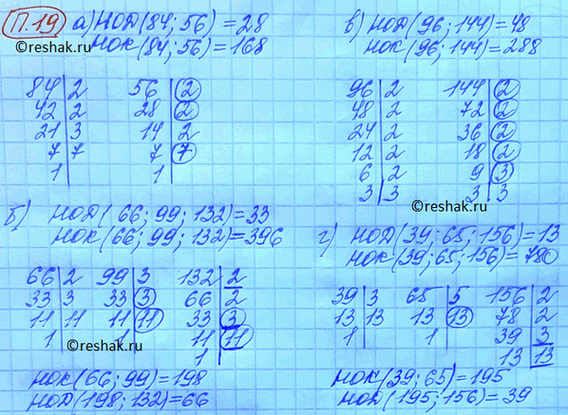 П.19
а) НОД(84; 56) = 28
НОК(84; 56) = 168
©reshak.ru
84 | 2 56 | 2
42 | 2 28 | 2
21 | 3 14 | 2
7 | 7 7 | 7
1 | 1 |
в) НОД(96; 144) = 48
НОК(96; 144) = 288
96 | 2 144 | 2
48 | 2 72 | 2
24 | 2 36 | 2
12 | 2 18 | 2
6 | 2 9 | 3
3 | 3 3 | 3
©reshak.ru
б) НОД(66; 99; 132) = 33
НОК(66; 99; 132) = 396
66 | 2 99 | 3 132 | 2
33 | 3 33 | 3 66 | 2
11 | 11 11 | 11 33 | 3
1 | 1 | 11 | 11
1 |
©reshak.ru
НОК(66; 99) = 198
НОД(198; 132) = 66
г) НОД(39; 65; 156) = 13
НОК(39; 65; 156) = 780
39 | 3 65 | 5 156 | 2
13 | 13 13 | 13 78 | 2
1 | 1 | 39 | 3
13 | 13
©reshak.ru
НОК(39; 65) = 195
НОД(195; 156) = 39